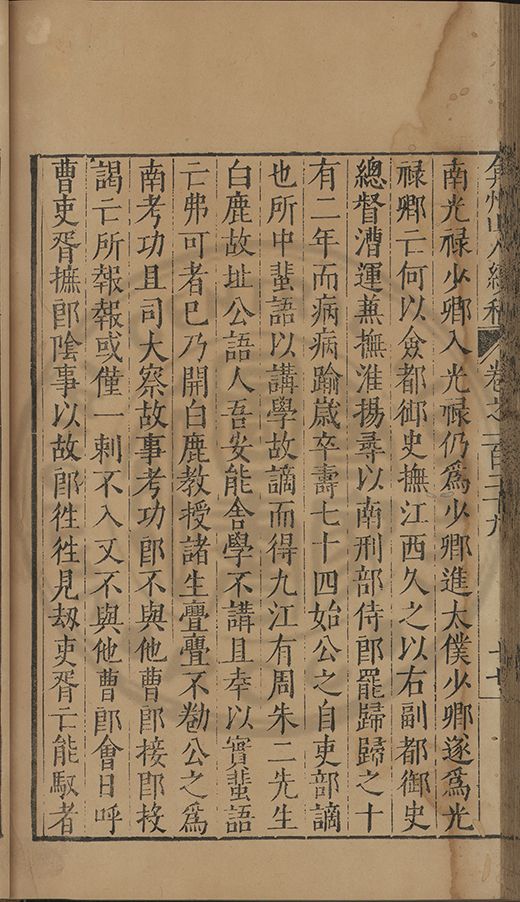 弇州山人續稿 卷之一百三十九 十七
南光禄少卿入光禄仍爲少卿進太僕少卿遂爲光
禄卿亡何以僉都御史撫江西久之以右副都御史
總督漕運兼撫淮揚尋以南刑部侍郎罷歸歸之十
有二年而病病踰歲卒壽七十四始公之自吏部謫
也所中蜚語以講學故謫而得九江有周朱二先生
白鹿故址公語人吾安能舍學不講且幸以實蜚語
亡弗可者已乃開白鹿教授諸生亹亹不勌公之爲
南考功且司大察故事考功郎不與他曹郎接郎投
謁亡所報報或僅一剌不入又不與他曹郎會日呼
曹吏胥摭郎陰事以故郎徃徃見刼吏胥亡能馭者